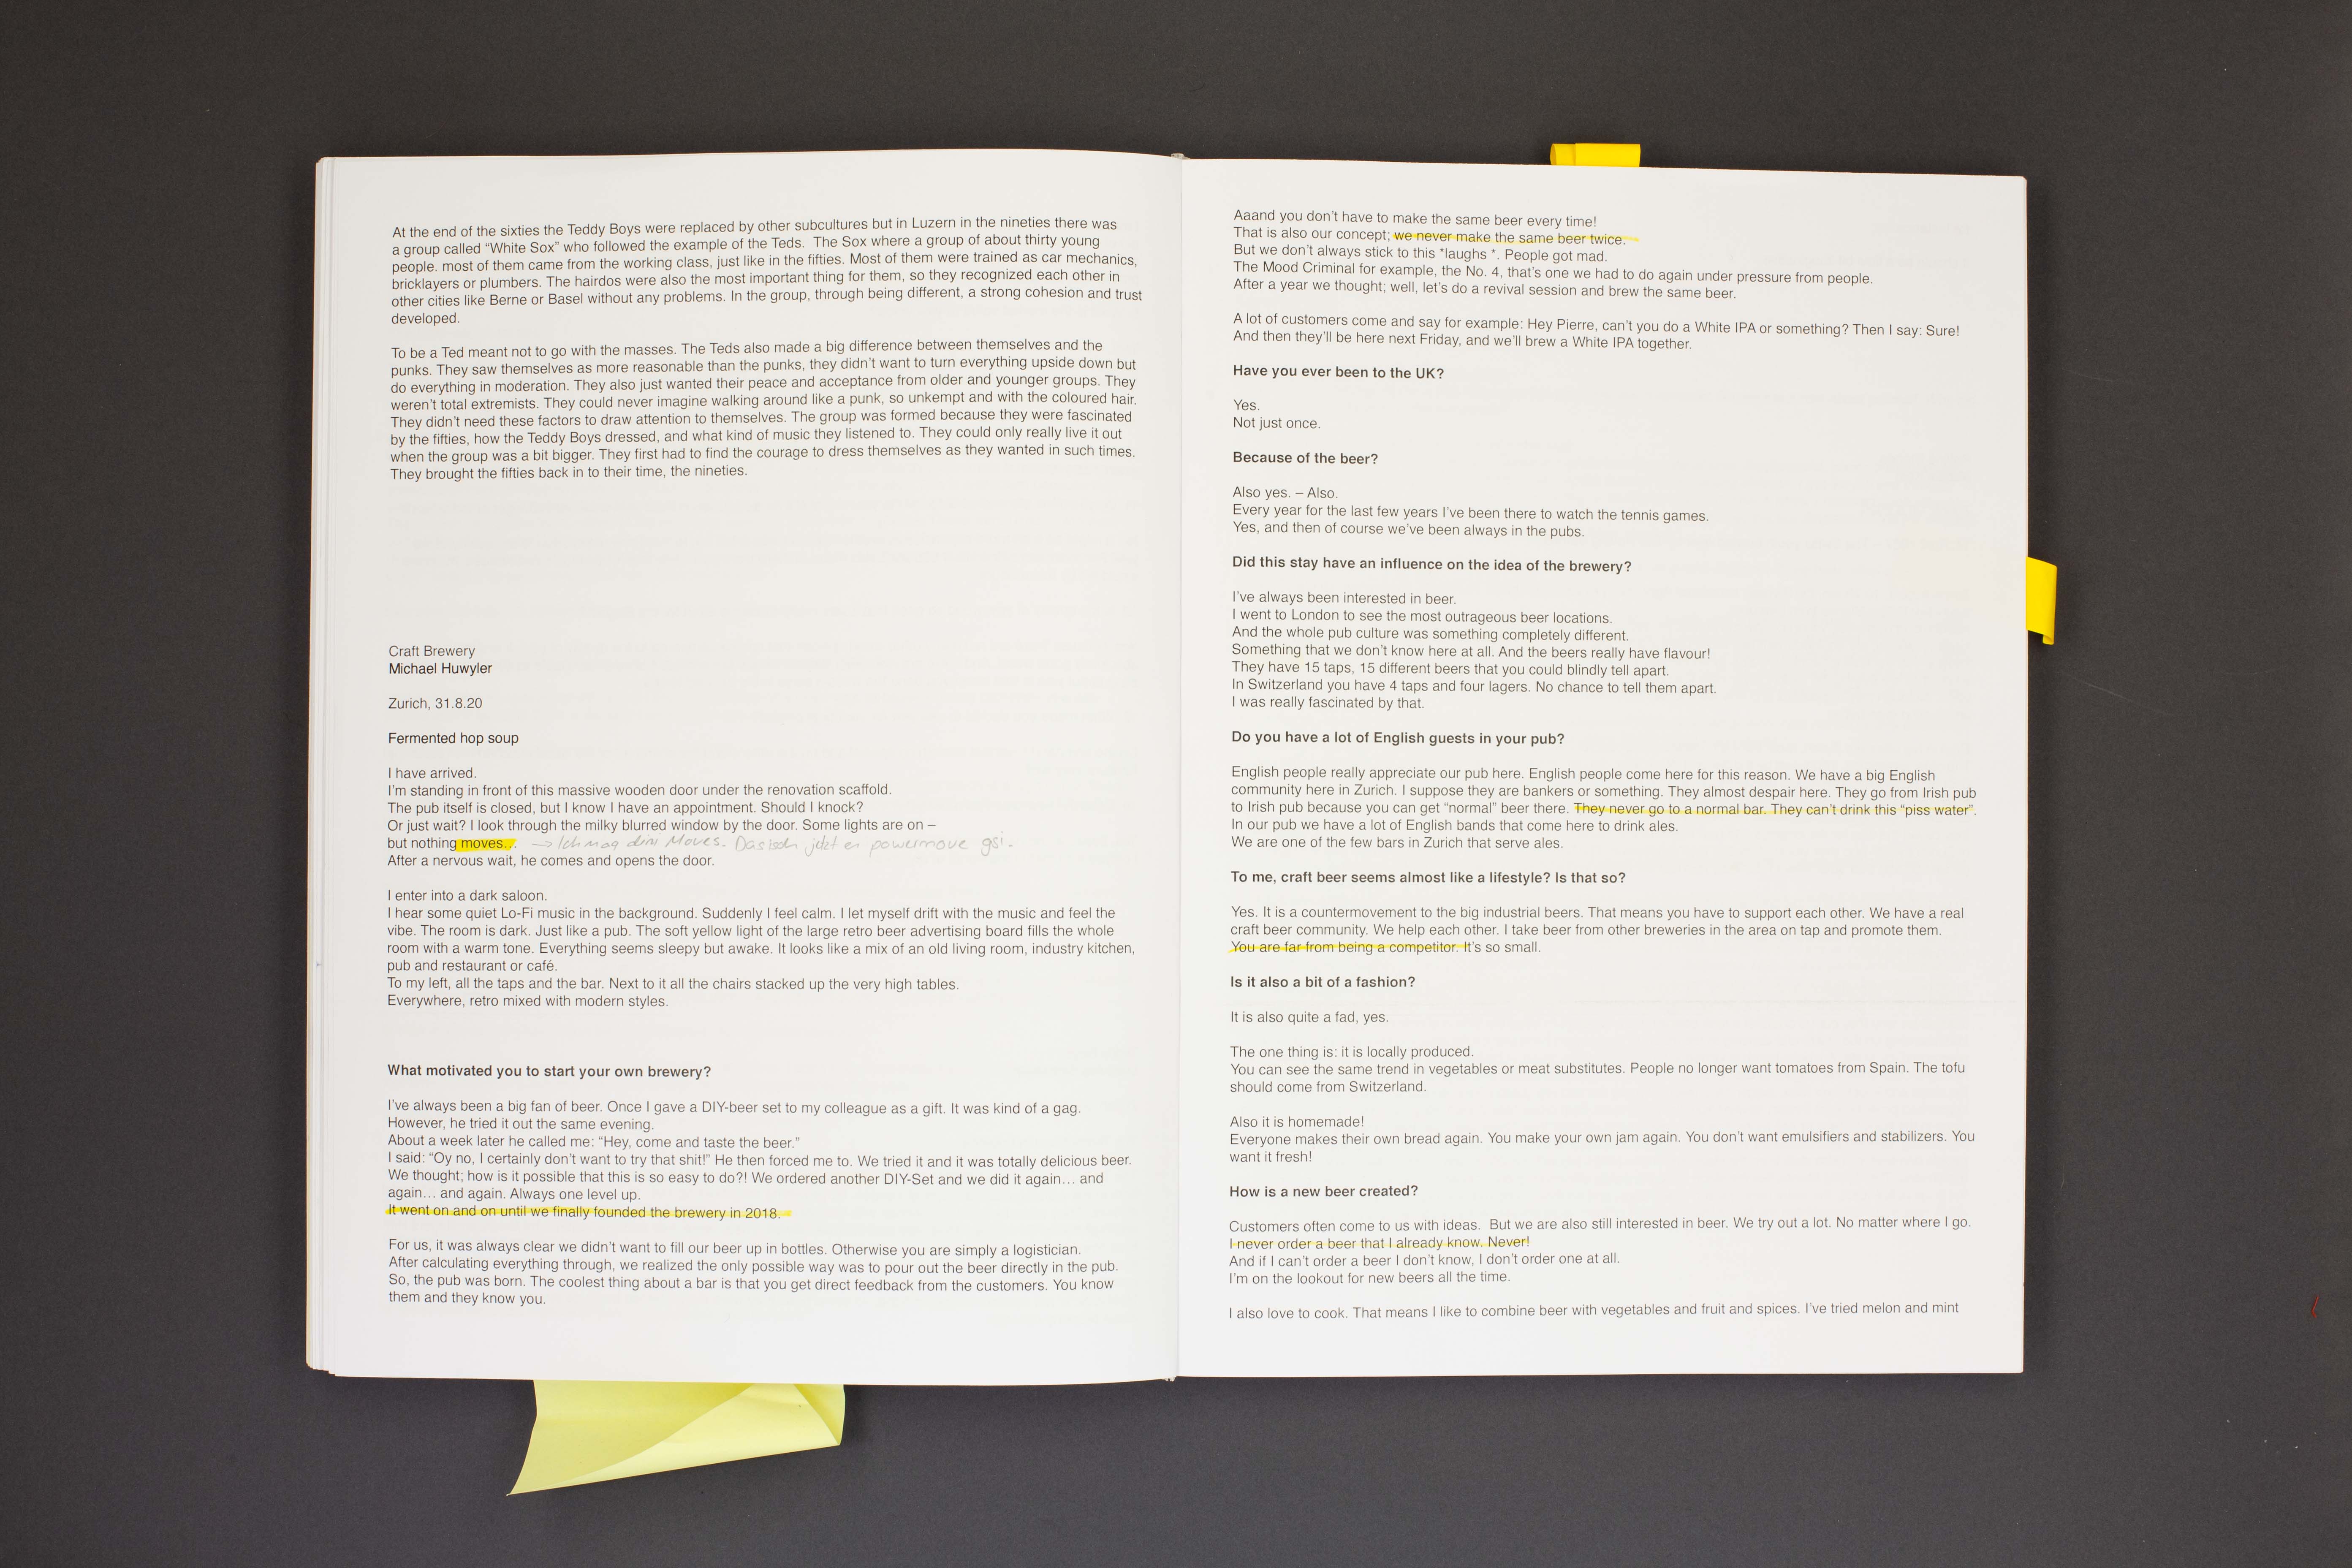 At the end of the sixties the Teddy Boys were replaced by other subcultures but in Luzern in the nineties there was
a group called “White Sox” who followed the example of the Teds. The Sox where a group of about thirty young
people. most of them came from the working class, just like in the fifties. Most of them were trained as car mechanics,
bricklayers or plumbers. The hairdos were also the most important thing for them, so they recognized each other in
other cities like Berne or Basel without any problems. In the group, through being different, a strong cohesion and trust
developed.
To be a Ted meant not to go with the masses. The Teds also made a big difference between themselves and the
punks. They saw themselves as more reasonable than the punks, they didn’t want to turn everything upside down but
do everything in moderation. They also just wanted their peace and acceptance from older and younger groups. They
weren’t total extremists. They could never imagine walking around like a punk, so unkempt and with the coloured hair.
They didn’t need these factors to draw attention to themselves. The group was formed because they were fascinated
by the fifties, how the Teddy Boys dressed, and what kind of music they listened to. They could only really live it out
when the group was a bit bigger. They first had to find the courage to dress themselves as they wanted in such times.
They brought the fifties back in to their time, the nineties.
Craft Brewery
Michael Huwyler
Zurich, 31.8.20
Fermented hop soup
I have arrived.
I’m standing in front of this massive wooden door under the renovation scaffold.
The pub itself is closed, but I know I have an appointment. Should I knock?
Or just wait? I look through the milky blurred window by the door. Some lights are on –
but nothing moves... → Ich mag dini Moves. Das isch jetzt en powermove gsi.
After a nervous wait, he comes and opens the door.
I enter into a dark saloon.
I hear some quiet Lo-Fi music in the background. Suddenly I feel calm. I let myself drift with the music and feel the
vibe. The room is dark. Just like a pub. The soft yellow light of the large retro beer advertising board fills the whole
room with a warm tone. Everything seems sleepy but awake. It looks like a mix of an old living room, industry kitchen,
pub and restaurant or café.
To my left, all the taps and the bar. Next to it all the chairs stacked up the very high tables.
Everywhere, retro mixed with modern styles.
What motivated you to start your own brewery?
I’ve always been a big fan of beer. Once I gave a DIY-beer set to my colleague as a gift. It was kind of a gag.
However, he tried it out the same evening.
About a week later he called me: “Hey, come and taste the beer.”
I said: “Oy no, I certainly don’t want to try that shit!” He then forced me to. We tried it and it was totally delicious beer.
We thought; how is it possible that this is so easy to do?! We ordered another DIY-Set and we did it again… and
again… and again. Always one level up.
It went on and on until we finally founded the brewery in 2018.
For us, it was always clear we didn’t want to fill our beer up in bottles. Otherwise you are simply a logistician.
After calculating everything through, we realized the only possible way was to pour out the beer directly in the pub.
So, the pub was born. The coolest thing about a bar is that you get direct feedback from the customers. You know
them and they know you.
Aaand you don’t have to make the same beer every time!
That is also our concept; we never make the same beer twice.
But we don’t always stick to this *laughs *. People got mad.
The Mood Criminal for example, the No. 4, that’s one we had to do again under pressure from people.
After a year we thought; well, let’s do a revival session and brew the same beer.
A lot of customers come and say for example: Hey Pierre, can’t you do a White IPA or something? Then I say: Sure!
And then they’ll be here next Friday, and we’ll brew a White IPA together.
Have you ever been to the UK?
Yes.
Not just once.
Because of the beer?
Also yes. – Also.
Every year for the last few years I’ve been there to watch the tennis games.
Yes, and then of course we’ve been always in the pubs.
Did this stay have an influence on the idea of the brewery?
I’ve always been interested in beer.
I went to London to see the most outrageous beer locations.
And the whole pub culture was something completely different.
Something that we don’t know here at all. And the beers really have flavour!
They have 15 taps, 15 different beers that you could blindly tell apart.
In Switzerland you have 4 taps and four lagers. No chance to tell them apart.
I was really fascinated by that.
Do you have a lot of English guests in your pub?
English people really appreciate our pub here. English people come here for this reason. We have a big English
community here in Zurich. I suppose they are bankers or something. They almost despair here. They go from Irish pub
to Irish pub because you can get “normal” beer there. They never go to a normal bar. They can’t drink this “piss water”.
In our pub we have a lot of English bands that come here to drink ales.
We are one of the few bars in Zurich that serve ales.
To me, craft beer seems almost like a lifestyle? Is that so?
Yes. It is a countermovement to the big industrial beers. That means you have to support each other. We have a real
craft beer community. We help each other. I take beer from other breweries in the area on tap and promote them.
You are far from being a competitor. It’s so small.
Is it also a bit of a fashion?
It is also quite a fad, yes.
The one thing is: it is locally produced.
You can see the same trend in vegetables or meat substitutes. People no longer want tomatoes from Spain. The tofu
should come from Switzerland.
Also it is homemade!
Everyone makes their own bread again. You make your own jam again. You don’t want emulsifiers and stabilizers. You
want it fresh!
How is a new beer created?
Customers often come to us with ideas. But we are also still interested in beer. We try out a lot. No matter where I go.
I never order a beer that I already know. Never!
And if I can’t order a beer I don’t know, I don’t order one at all.
I’m on the lookout for new beers all the time.
I also love to cook. That means I like to combine beer with vegetables and fruit and spices. I’ve tried melon and mint